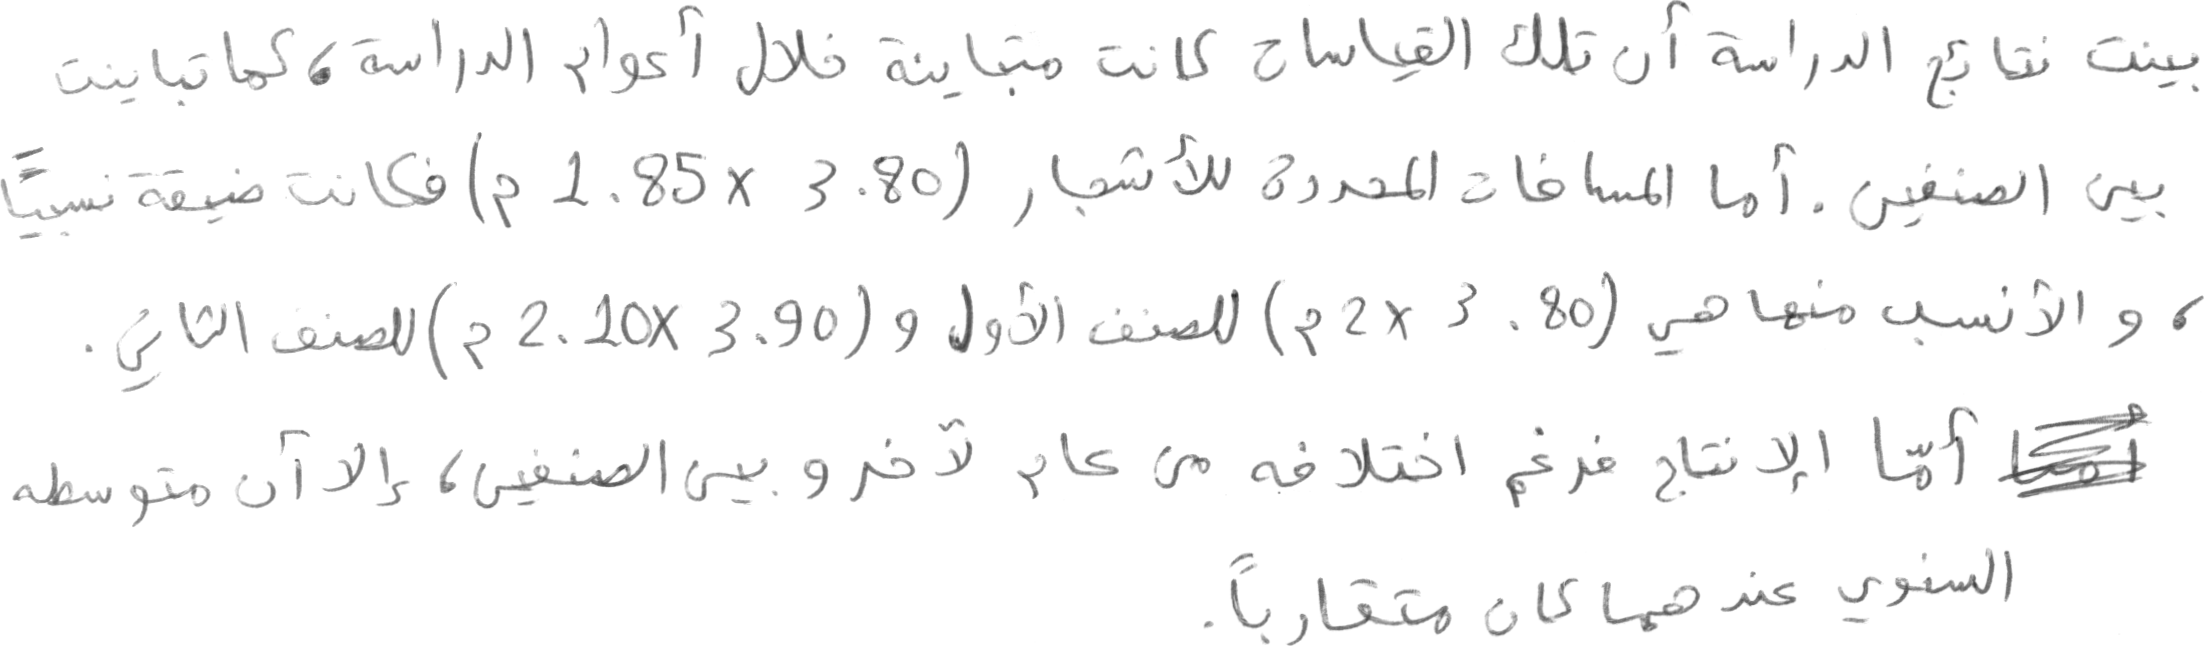 بينت نتائج الدراسة أن تلك القياسات كانت متباينة خلال أعوام الدراسة، كما تباينت
بين الصنفين. أما المسافات المحددة للأشجار (3.80 x 1.85 م) فكانت ضيقة نسبيًا
، و الأنسب منها هي (3.80 x 2 م) للصنف الأول و (3.90 x 2.10 م) للصنف الثاني.
أمّا الإنتاج فرغم اختلافه من عام لآخر و بين الصنفين، إلا أن متوسطه
السنوي عندهما كان متقارباً.